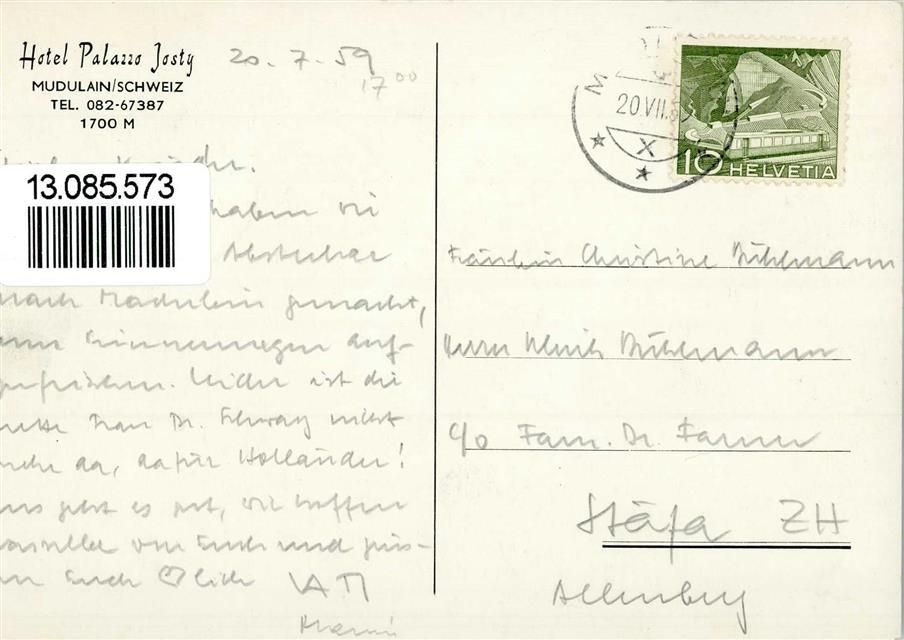 Hotel Palazzo Josty
MUDULAIN/SCHWEIZ
TEL. 082-67387
1700 M
20. 7. 59
17 00
20 VII. 5
X
10 HELVETIA
13.085.573
haben wir
Abstecher
nach Madulein gemacht,
um Erinnerungen auf-
zufrischen. Leider ist die
nette Frau Dr. nicht
mehr da, dafür Holländer!
Uns geht es gut, wir hoffen
dasselbe von Euch und grüs-
sen Euch ♡lich VATI
Mami
Fräulein Christine Bühlmann
Herrn Ulrich Bühlmann
c/o Fam. Dr. Fanner
Stäfa ZH
Allenberg